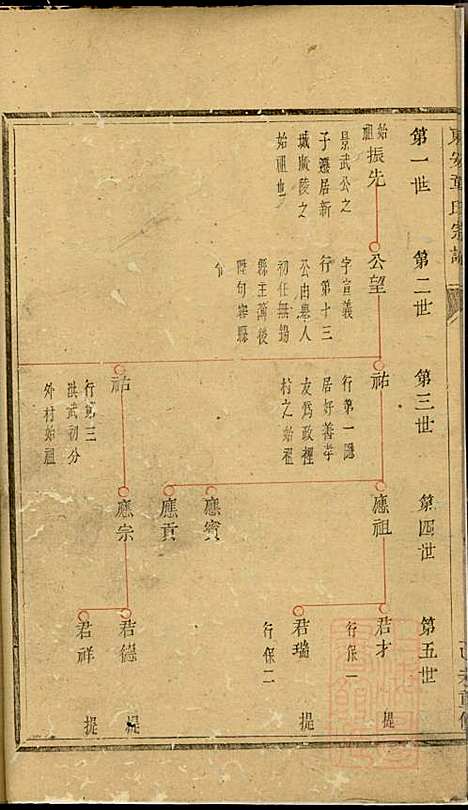 第一世
第二世
第三世
第四世
第五世
始祖
振先
景武公之
子遷居新
城廣陵之
始祖也
公望
字宣義
行第十三
公由舉人
初任無錫
縣主薄後
陞句容縣
祐
行第一隱
居好善孝
友爲政裡
村之始祖
祐
行第三
洪武初分
外村始祖
應祖
應賓
應貢
應宗
君才
行保一
提
君瑞
行保二
提
君德
提
君祥
提